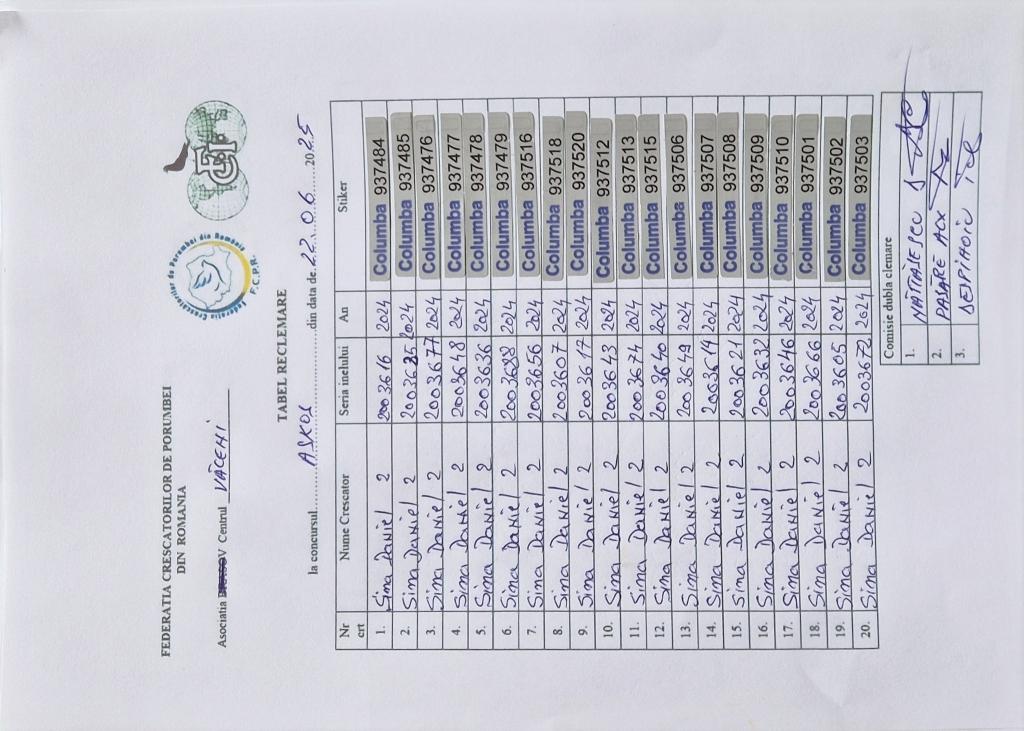 FEDERATIA CRESCATORILOR DE PORUMBEI
DIN ROMANIA
Federatia Crescatorilor de Porumbei din Romania
F.C.P.R.
Asociatia Centrul VĂCENI
TABEL RECLEMARE
la concursul din data de 22.06.2025
Nr crt Nume Crescator Seria inelului An Stiker
1. Sima Daniel 2 2003616 2024 Columba 937484
2. Sima Daniel 2 2003685 2024 Columba 937485
3. Sima Daniel 2 2003677 2024 Columba 937476
4. Sima Daniel 2 2003648 2024 Columba 937477
5. Sima Daniel 2 2003636 2024 Columba 937478
6. Sima Daniel 2 2024 Columba 937479
7. Sima Daniel 2 2003656 2024 Columba 937516
8. Sima Daniel 2 2003607 2024 Columba 937518
9. Sima Daniel 2 2003617 2024 Columba 937520
10. Sima Daniel 2 2003643 2024 Columba 937512
11. Sima Daniel 2 2003674 2024 Columba 937513
12. Sima Daniel 2 2003640 2024 Columba 937515
13. Sima Daniel 2 2003649 2024 Columba 937506
14. Sima Daniel 2 2003614 2024 Columba 937507
15. Sima Daniel 2 2003621 2024 Columba 937508
16. Sima Daniel 2 2003632 2024 Columba 937509
17. Sima Daniel 2 2003646 2024 Columba 937510
18. Sima Daniel 2 2003666 2024 Columba 937501
19. Sima Daniel 2 2003605 2024 Columba 937502
20. Sima Daniel 2 2003672 2024 Columba 937503
Comisie dubla clemare
1.
2.
3.